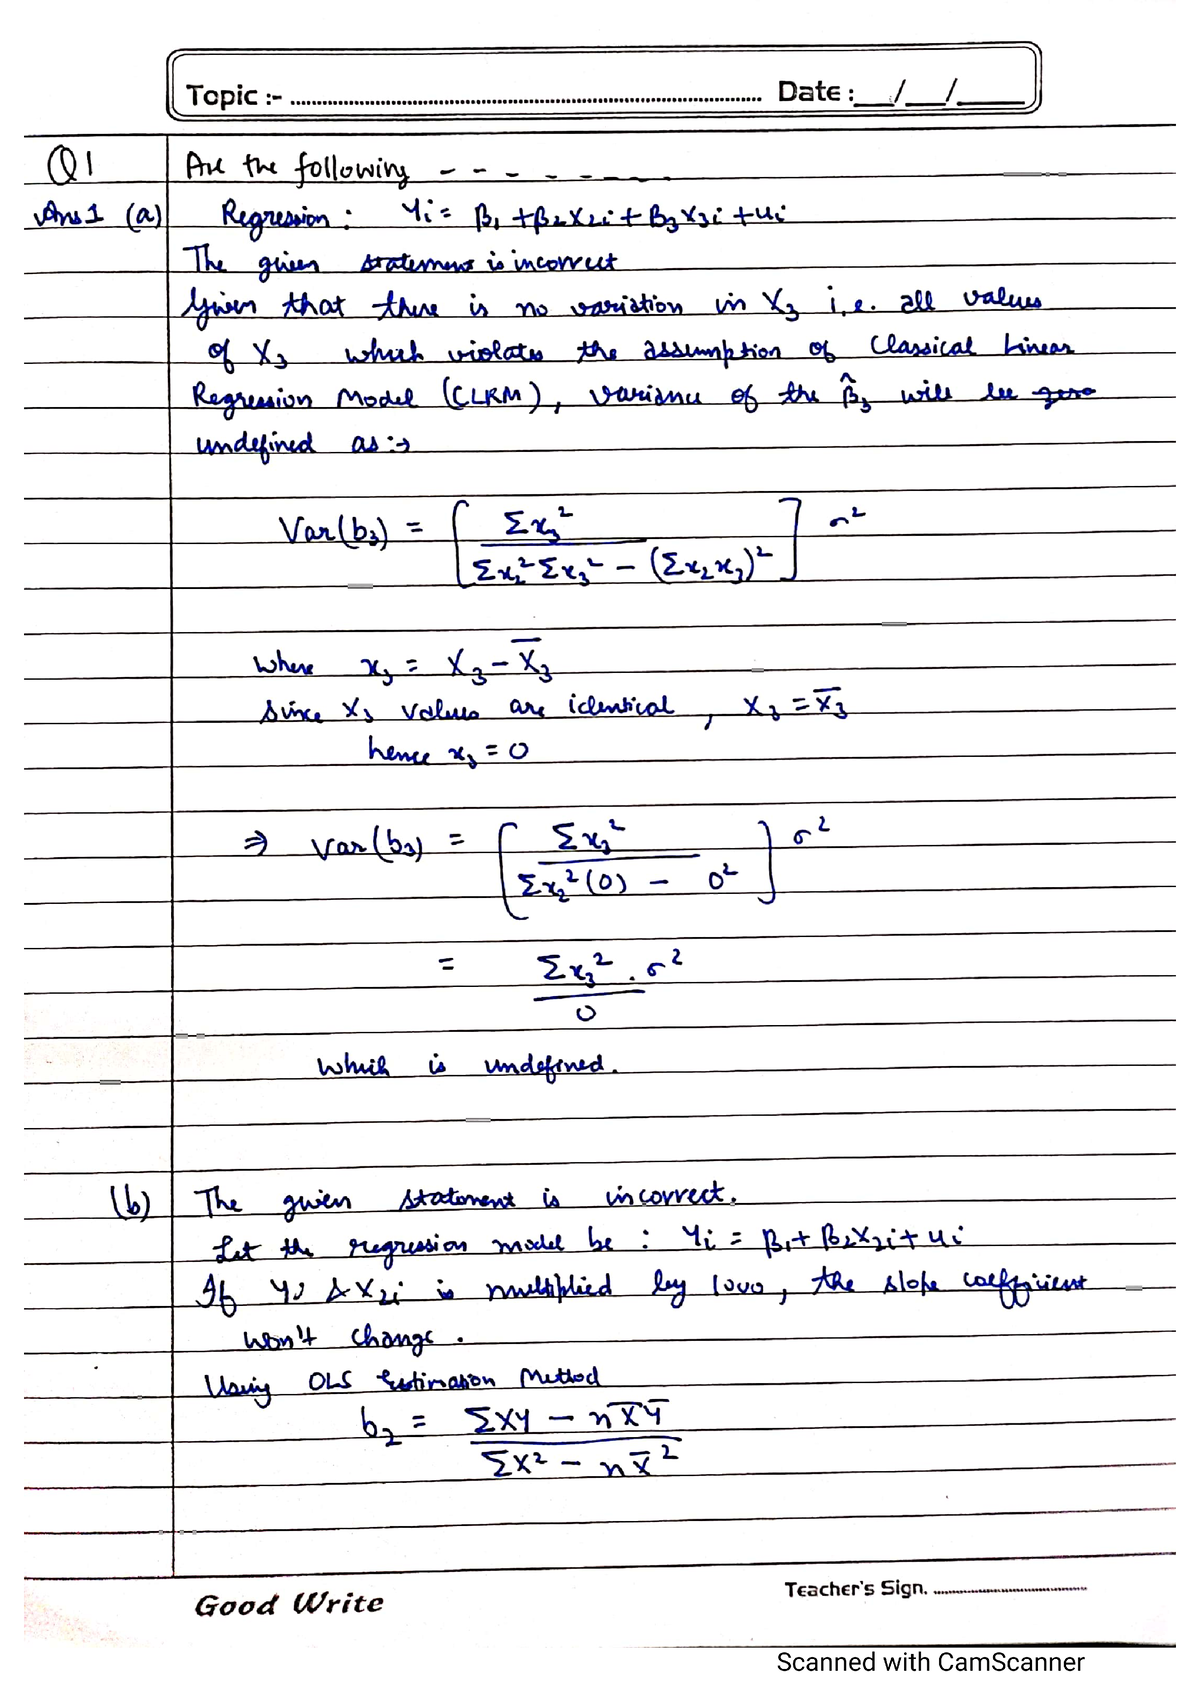 Topic :- ........................ Date : __/__/____
Q1 Are the following - - - - - - - -
Ans 1 (a) Regression : Yi = β1 + β2X2i + β3X3i + ui
The given statement is incorrect
Given that there is no variation in X3 i.e. all values
of X3 which violates the assumption of Classical Linear
Regression Model (CLRM), variance of the β̂3 will be ~~zero~~
undefined as :→
Var(b3) = [ Σx3² / (Σx2² Σx3² - (Σx2x3)²) ] σ²
where x3 = X3 - X̄3
Since X3 values are identical, X3 = X̄3
hence x3 = 0
⇒ Var(b3) = [ Σx3² / (Σx2²(0) - 0²) ] σ²
= Σx3² . σ² / 0
which is undefined.
(b) The given statement is incorrect.
Let the regression model be : Yi = β1 + β2X2i + ui
If Yi & X2i is multiplied by 1000, the slope coefficient
won't change .
Using OLS Estimation Method
b2 = (ΣXY - nX̄Ȳ) / (ΣX² - nX̄²)
Good Write
Teacher's Sign. ........................
Scanned with CamScanner